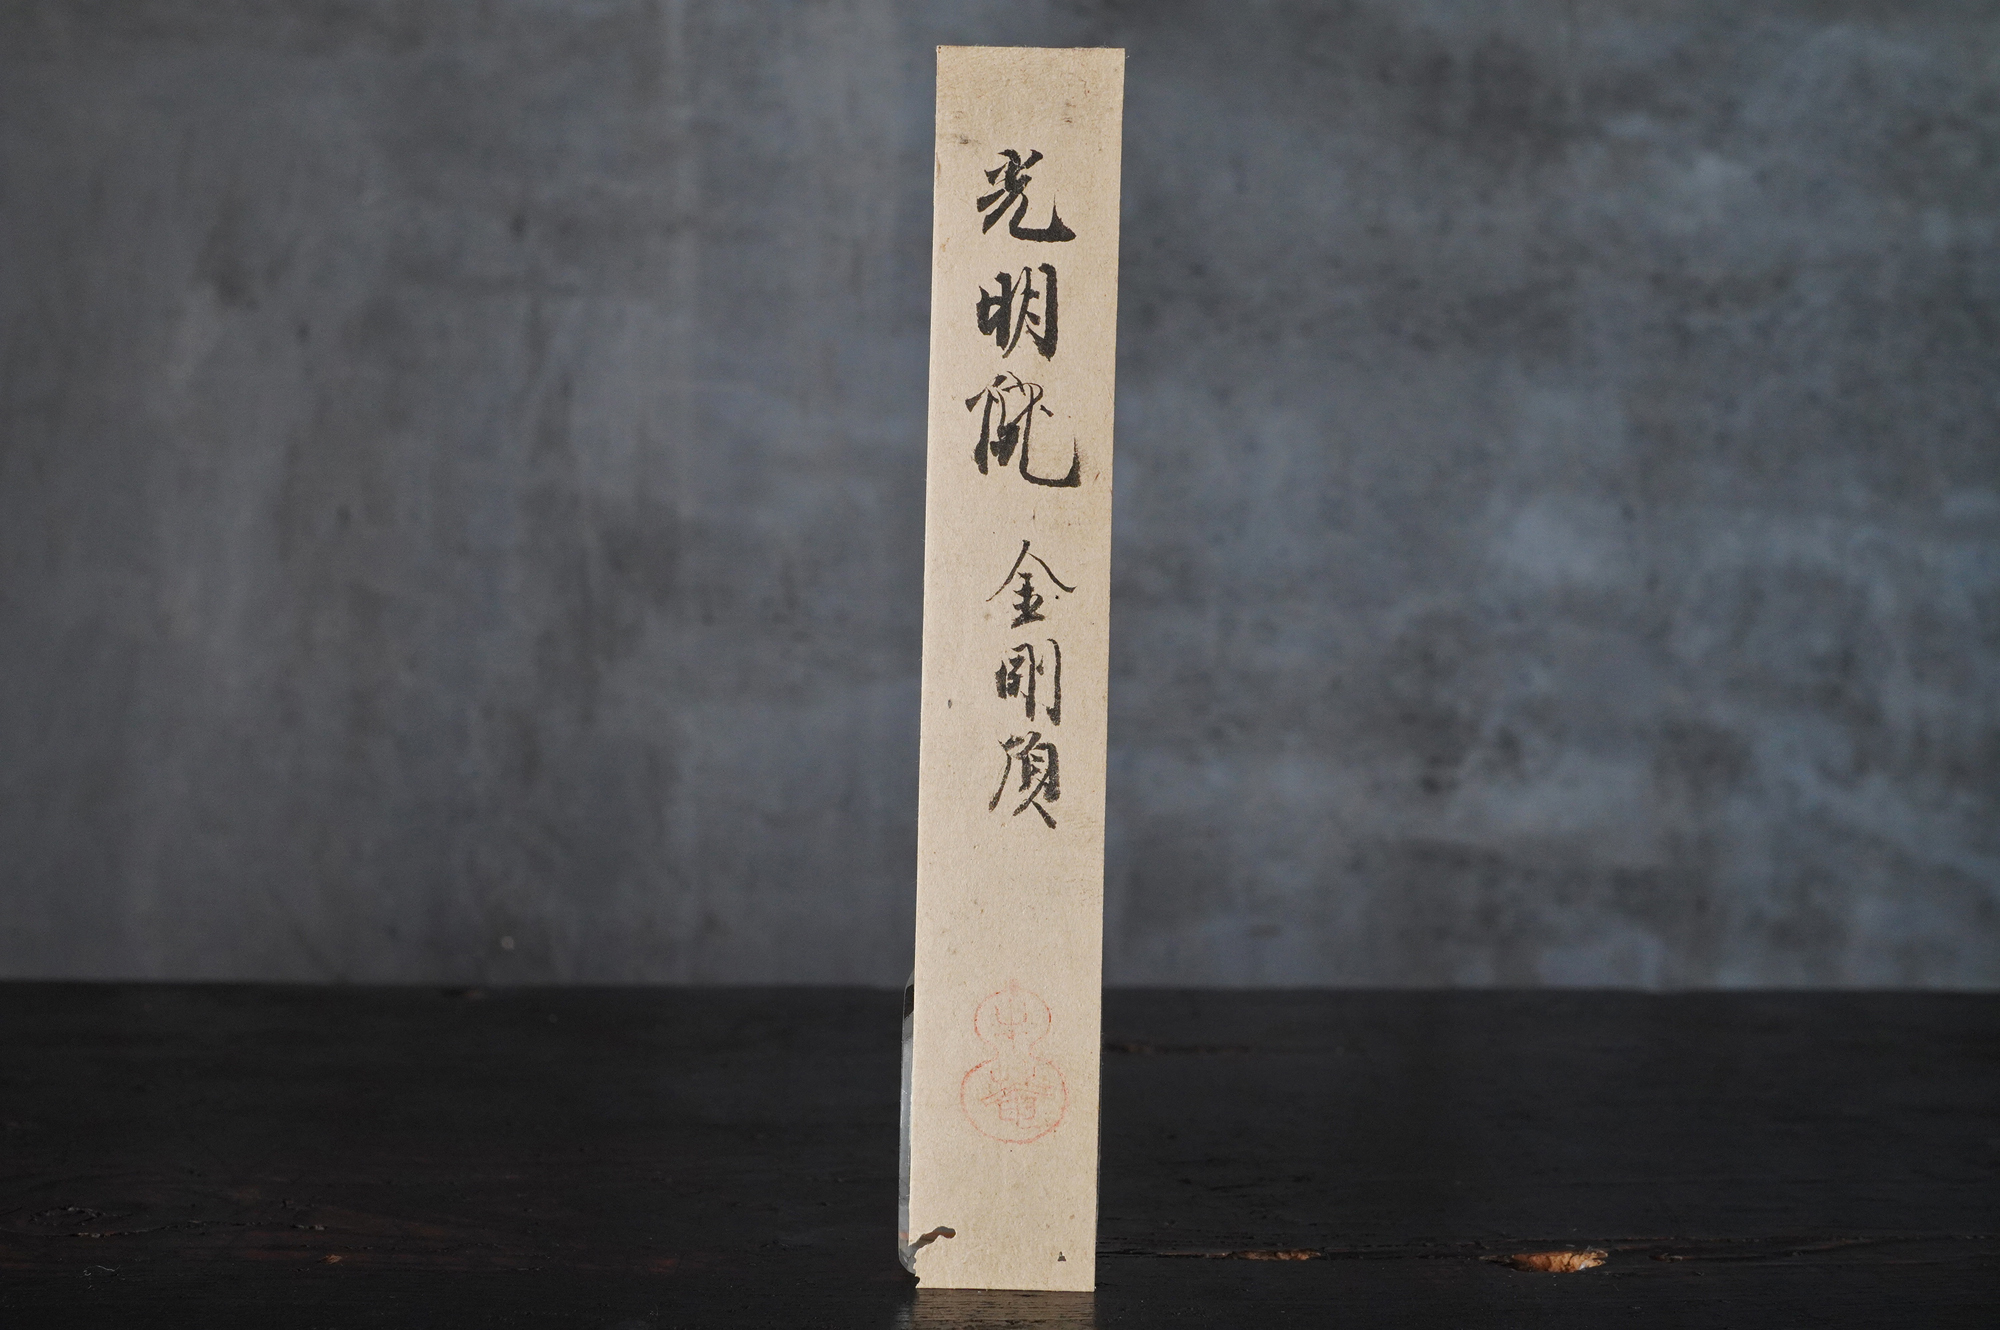 光明
金剛頂